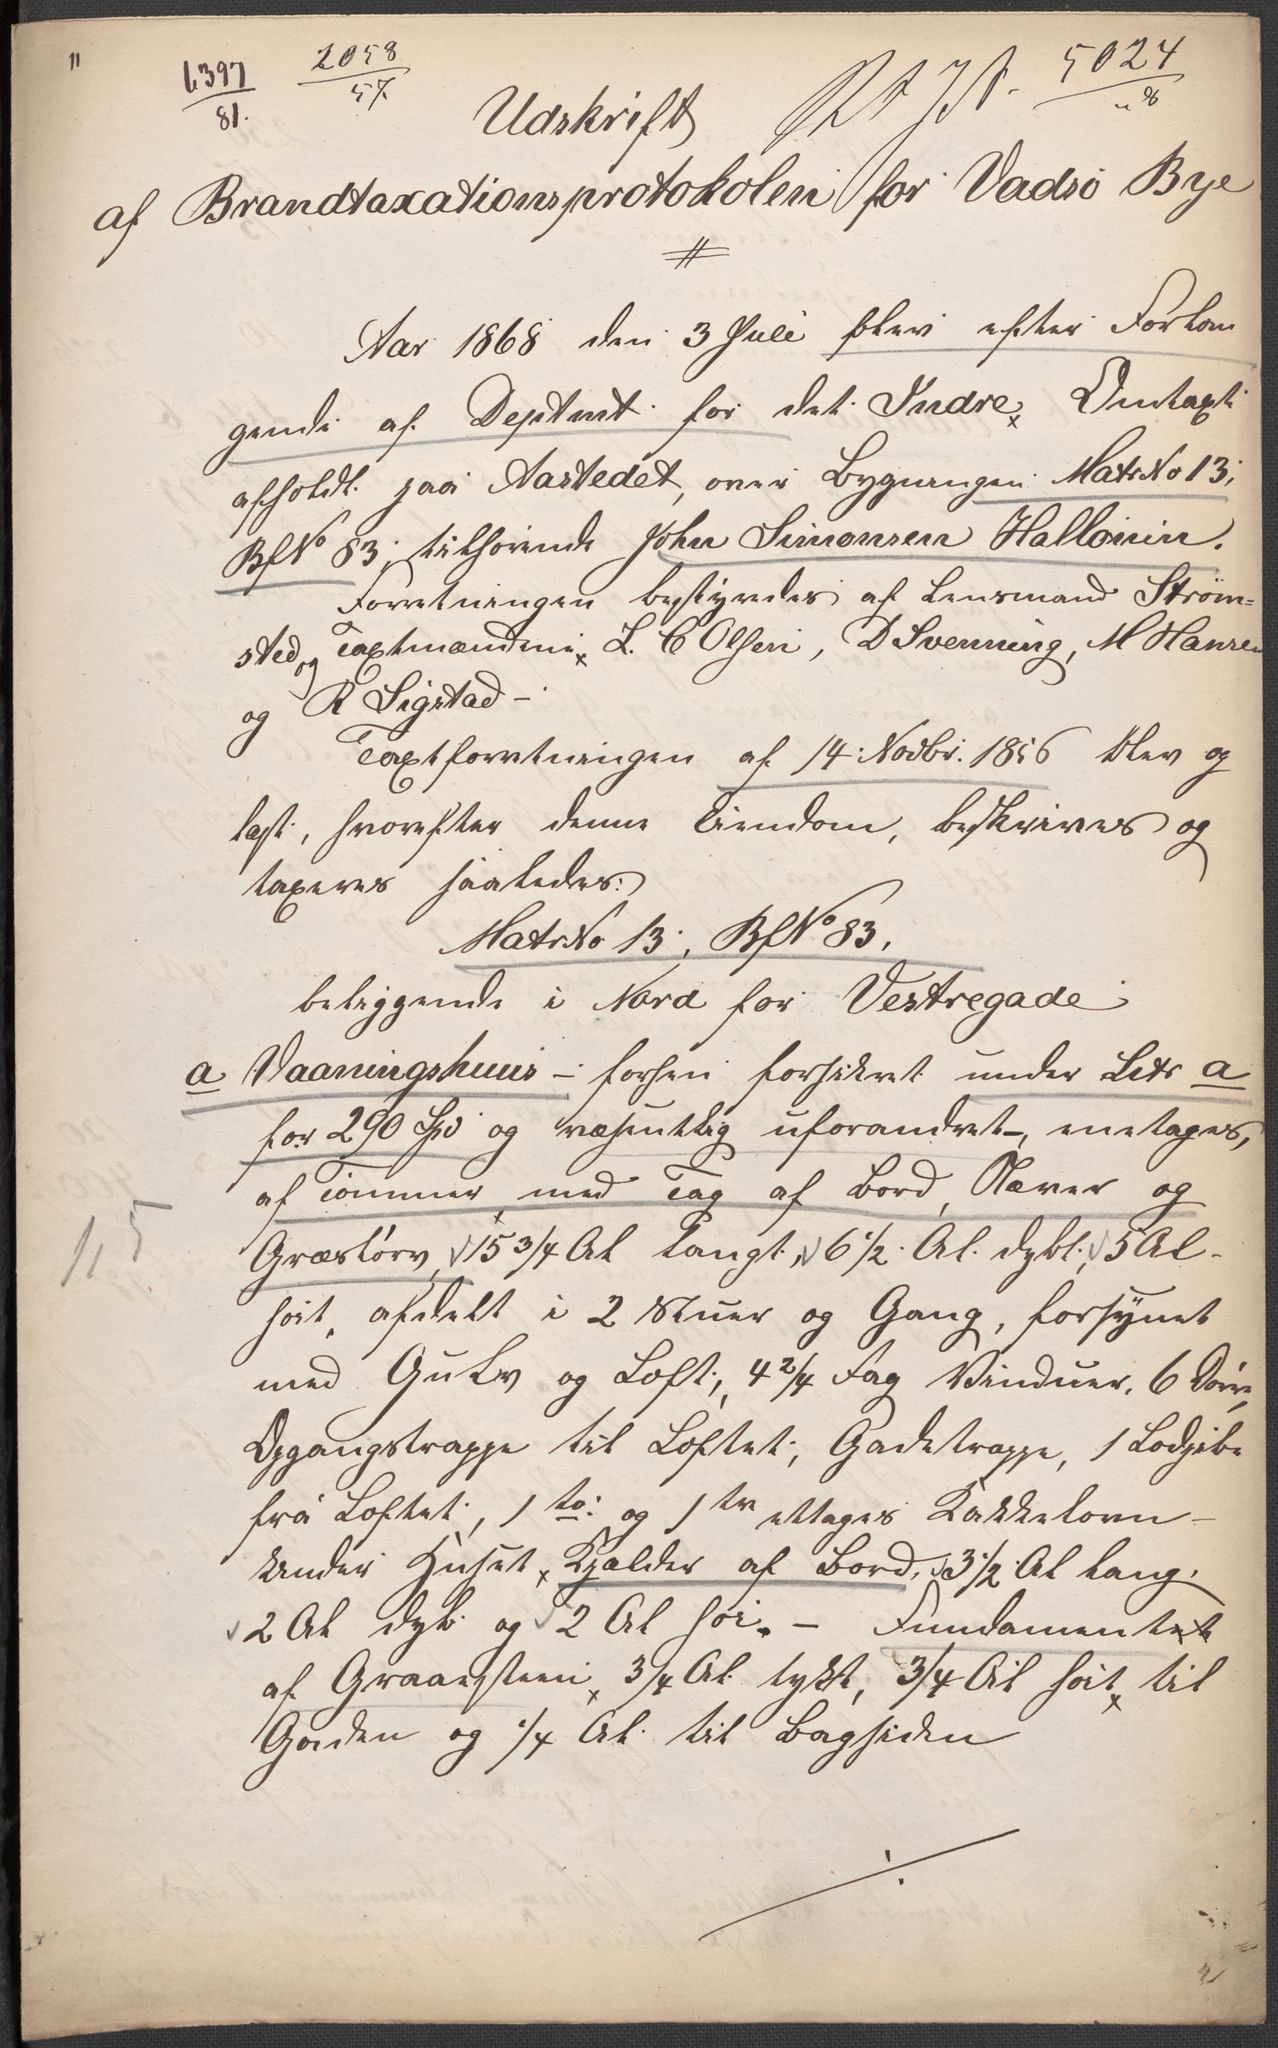 11
6397
81.
2058
57.
5024
Udskrift
af Brandtaxationsprotokolen for Vadsö Bye
Aar 1868 den 3 Juli blev efter Forlan
gende af Deptmt for det Indre Omtaxt
afholdt paa Aastedet, over Bygningen MatrNo 13,
BfNo 83, tilhörende John Simonsen Halloinin.
Forretningen bestyredes af Lensmand Ström=
sted og Taxtmændene L. C Olsen, D Svenning, M Hansen
og R Sigstad –
Taxtforretningen af 14 Novbr. 1856 blev op
læst, hvorefter denne Eiendom, beskrives og
taxeres saaledes:
MatrNo 13, BfNo 83.
beliggende i Nord for Vestregade
a Vaaningshuus – forhen forsikret under Litr a
for 290 Spd og væsentlig uforandret –, enetages,
af Tömmer med Tag af Bord, Næver og
Græstörv, 15 3/4 Al langt, 6 1/2 Al. dybt, 5 Al
höit, afdelt i 2 Stuer og Gang, forsynet
med Gulv og Loft, 4 2/4 Fag Vinduer, 6 Döre,
Opgangstrappe til Loftet, Gadetrappe, 1 Lodpibe
fra Loftet, 1 to: og 1 tre etages Kakkelovn –
Under Huset Kjælder af Bord, 3 1/2 Al lang,
2 Al dyb og 2 Al höi. – Fundamentet
af Graasteen, 3/4 Al tykt, 3/4 Al höit til
Gaden og 1/4 Al. til Bagsiden